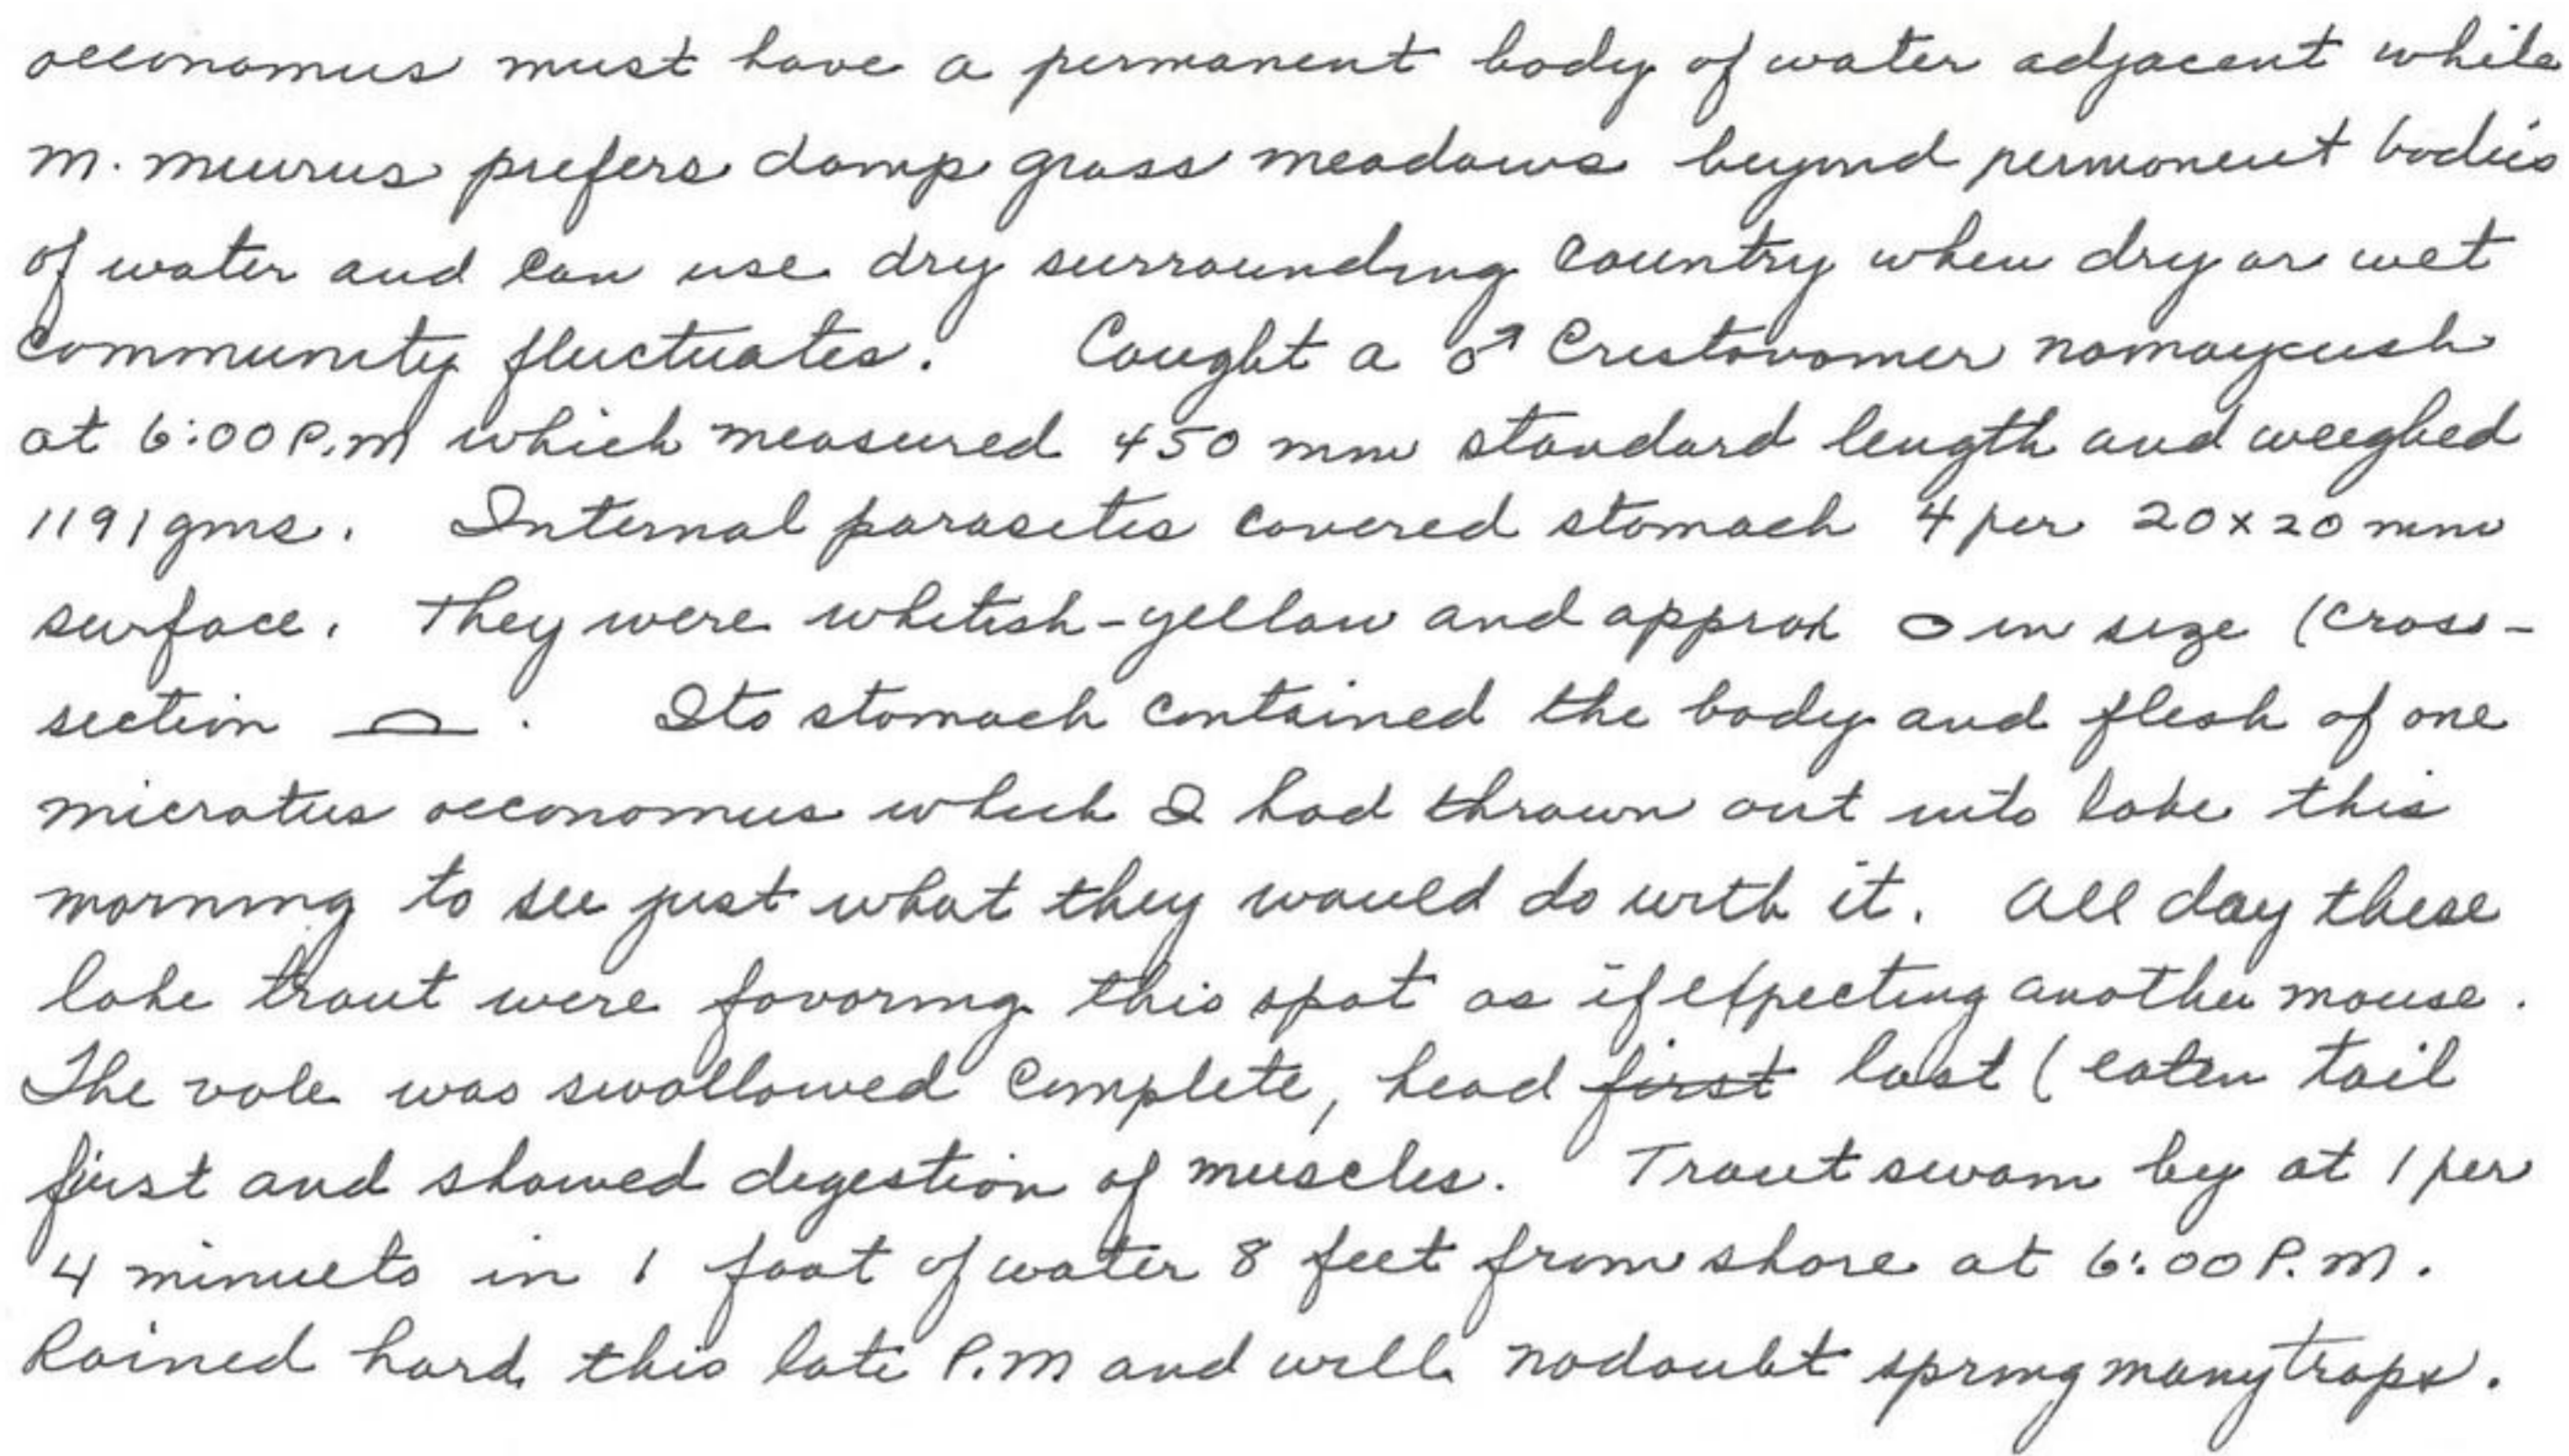 oeconomus must have a permanent body of water adjacent while
M. miurus prefers damp grass meadows beyond permanent bodies
of water and can use dry surrounding country when dry or wet
community fluctuates. Caught a ♂ Cristovomer namaycush
at 6:00 P.M which measured 450 mm standard length and weighed
1191 gms. Internal parasites covered stomach 4 per 20 x 20 mm
surface. They were whitish-yellow and approx in size (cross-
section . Its stomach contained the body and flesh of one
microtus oeconomus which I had thrown out into lake this
morning to see just what they would do with it. All day these
lake trout were favoring this spot as if expecting another mouse.
The vole was swallowed complete, head first last (eaten tail
first and showed digestion of muscles. Trout swam by at 1 per
4 minuets in 1 foot of water 8 feet from shore at 6:00 P.M.
Rained hard this late P.M and will nodoubt spring many traps.